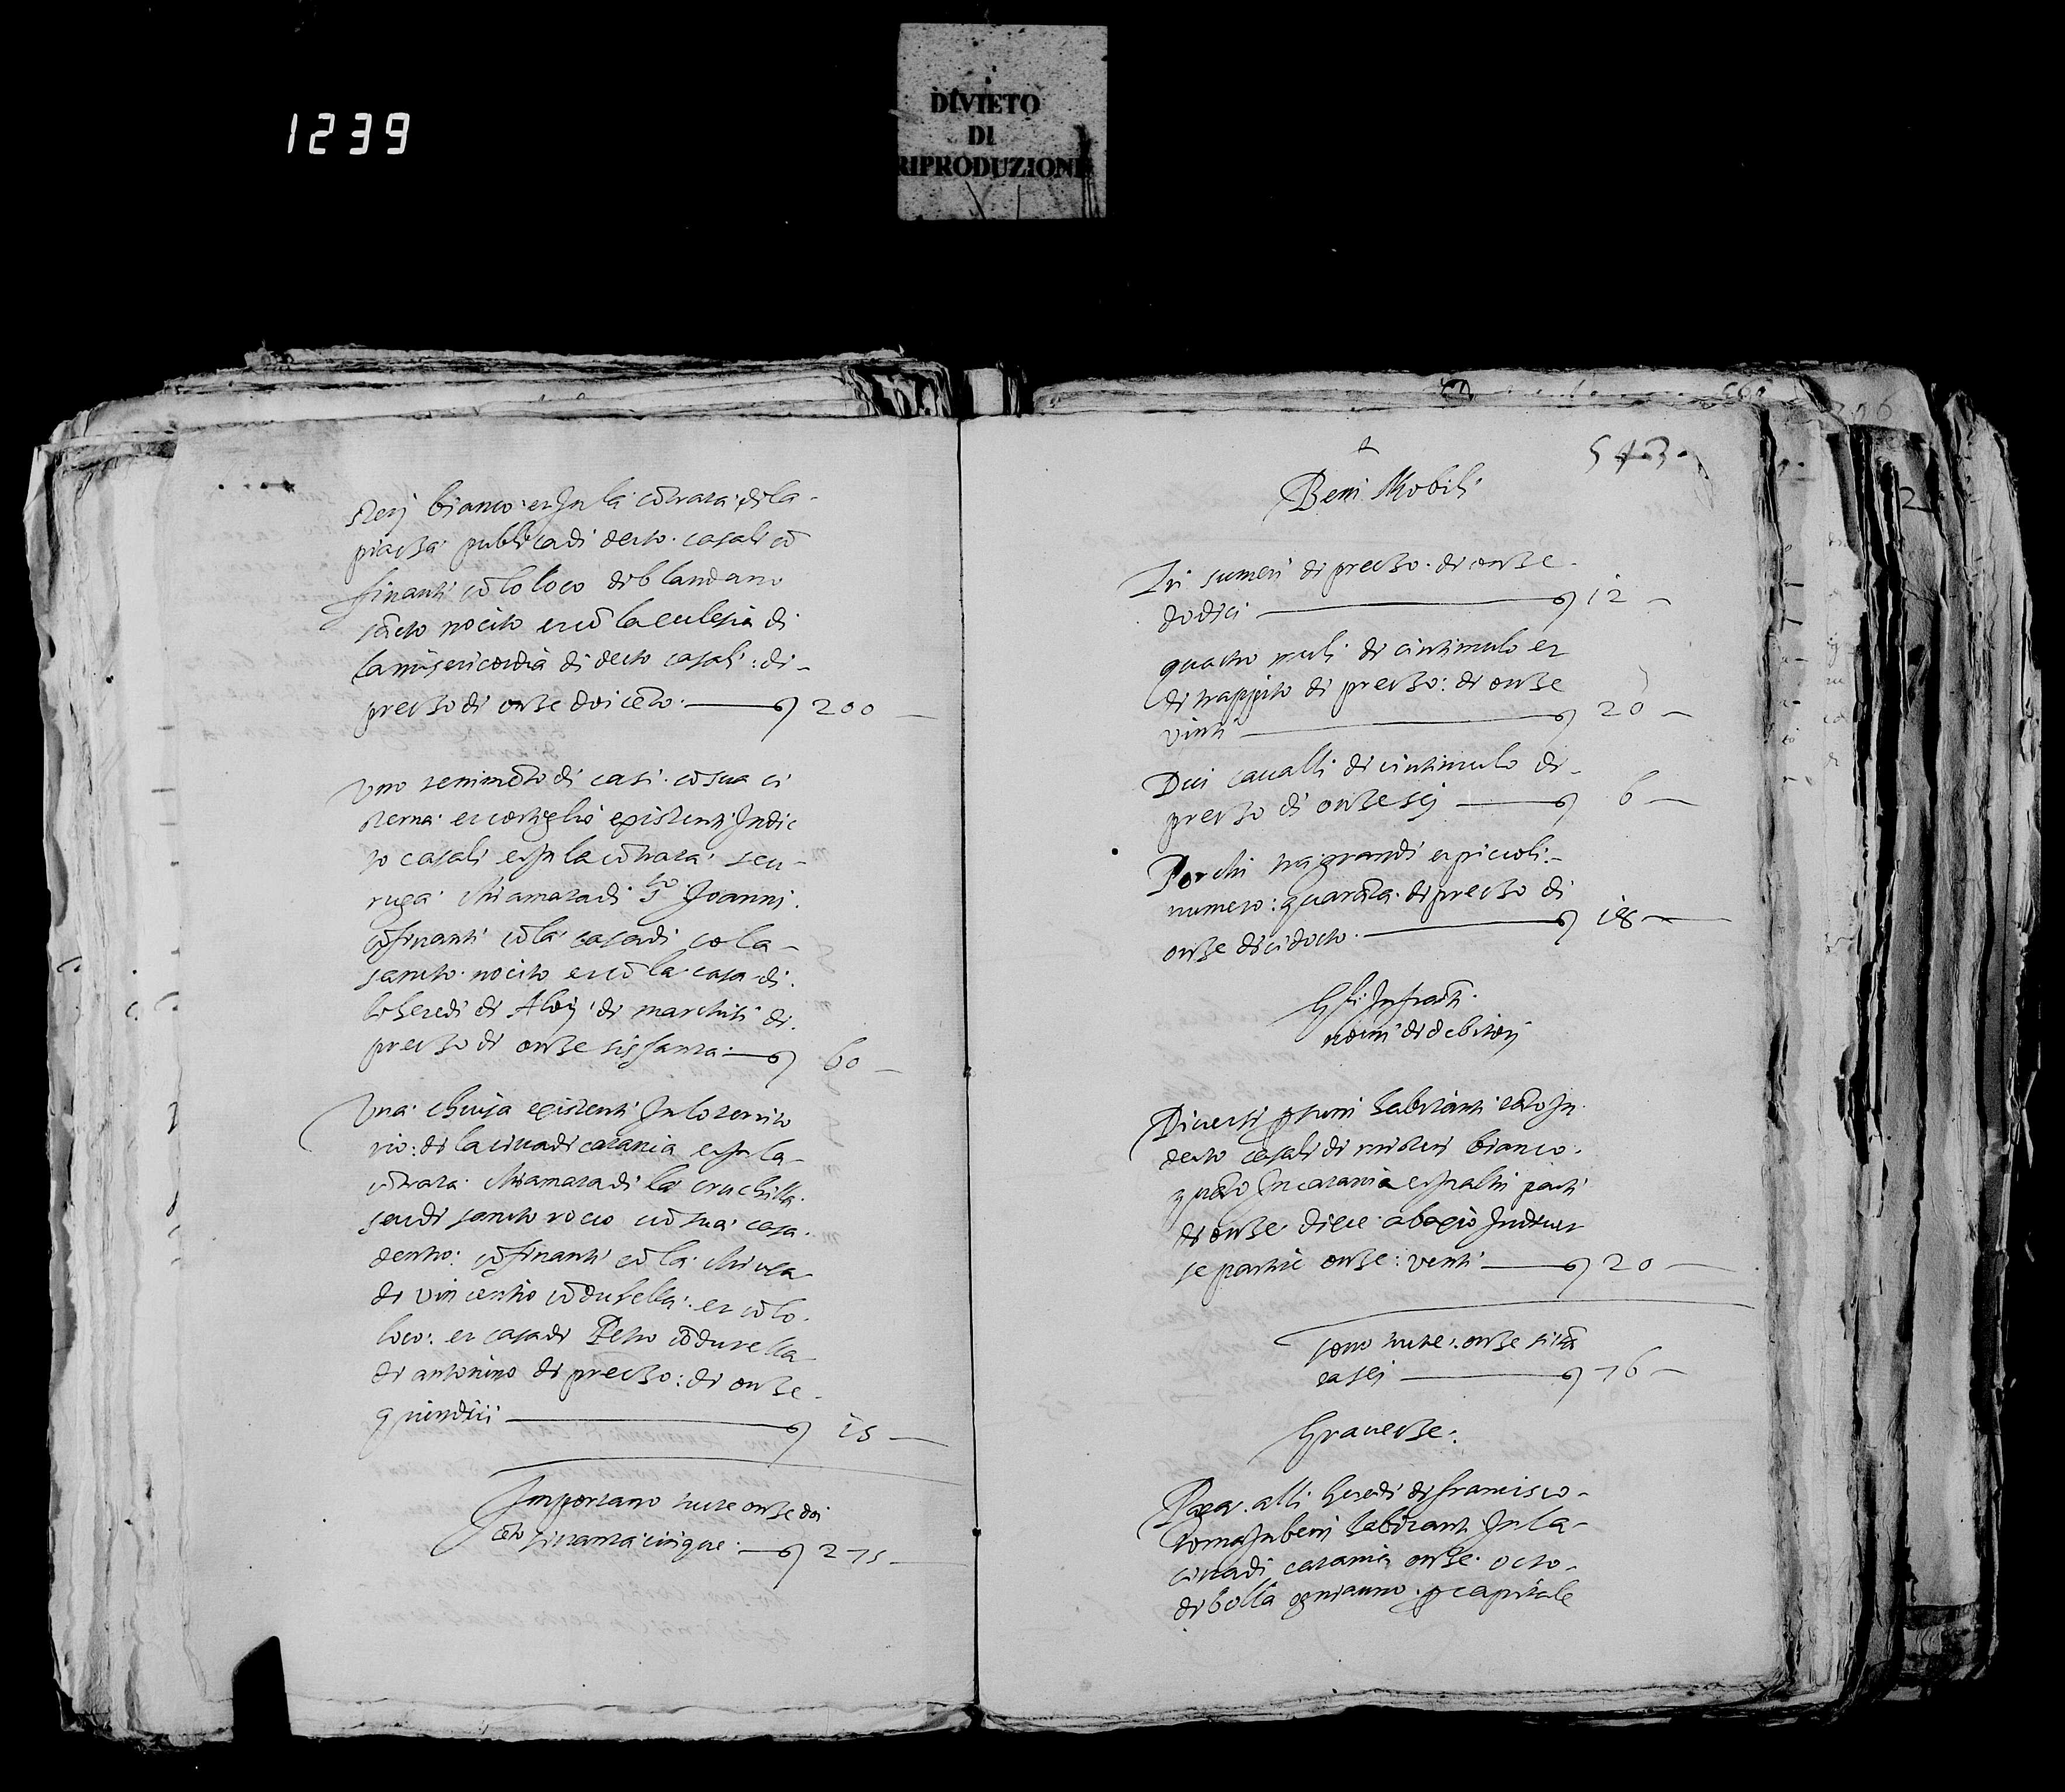 1239
DIVIETO
DI
RIPRODUZIONE
sterj bianco et In la cōtrata di la
piacza publica di decto casali cō
finanti cō lo loco di blandano
sācto nocito et cō la eclesia di
la misericordia di decto casali: di
preczo di onze doi cēto 200
Uno tenimēto di casi cō sua ci
sterna et cortiglio existenti In dic
to casali et In la cōtrata seu
ruga chiamata di S.to Joanni
cōfinanti cō la casa di cola
sancto nocito et cō la casa di
li heredi di Aloi di marchisi di
preczo di onze sissanta 60
Una chiusa existenti In lo territo
rio: di la cita di catania et In la
cōtrata chiamata di la cruchilla
seu di sancto rocco cō sua casa
dentro: cōfinanti cō la chiusa
di vincentio cōdurella: et cō lo
loco: et casa di Petro cōdurella
di antonino di preczo: di onze
quindici 15
Importano tucte onze doi
cēto sittanta cinque 275
543
Beni Mobili
Tri sumeri di preczo di onze
dodici 12
quactro muli di cintimulo et
di trappito di preczo: di onze
vinti 20
Dui cavalli di cintimulo di
preczo di onze sej 6
Porchi tra grandi et piccoli
numero: quarāta di preczo di
onze dicidocto 18
Gli Infracti
nomi di debitorj
Diversi psuni habitanti tāto In
decto casali di misteri bianco
quāto In catania et In altri parti
di onze diece abaxio Indiver
se partite onze: venti 20
sono tucte: onze sittā
ta sej 76
Gravecze:
Paga alli heredi di francisco
roma In beni habitanti In la
cita di catania onze octo
di bolla ogni anno p capitale